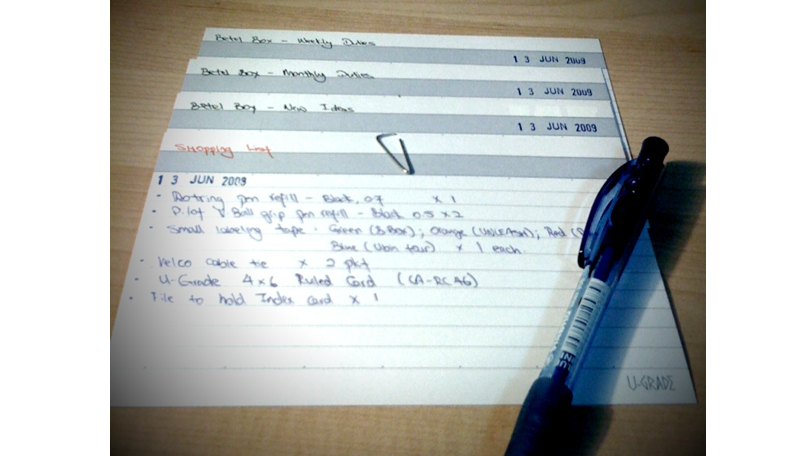 Betel Box - Weekly Duties
1 3 JUN 2009
Betel Box - Monthly Duties
1 3 JUN 2009
Betel Box - New Ideas
1 3 JUN 2009
Shopping List
1 3 JUN 2009
- Rotring pen refill - Black, 0.7 x 1
- Pilot Ball grip pen refill - black 0.5 x 2
- Small labeling tape - Green (B.Box); Orange ; Red
Blue x 1 each.
- Velco Cable tie x 2 pkt
- U-Grade 4x6 Ruled Card (CA-RC46)
- File to hold Index card x 1
U-GRADE